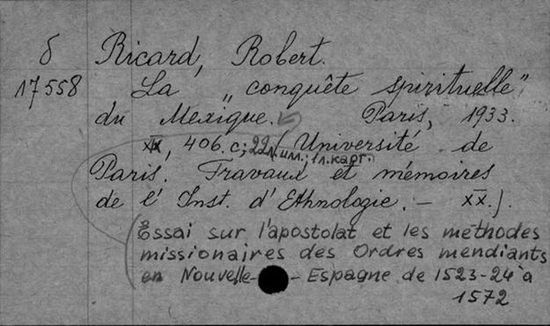 б Ricard, Robert.
17558 La „conquête spirituelle"
du Mexique. Paris, 1933.
XIX, 406 c.; 22 л. илл.; 1 л. карт. (Université de
Paris. Travaux et mémoires
de l'Inst. d'Ethnologie. – XX.).
(Essai sur l'apostolat et les méthodes
missionaires des Ordres mendiants
en Nouvelle-Espagne de 1523-24 à
1572